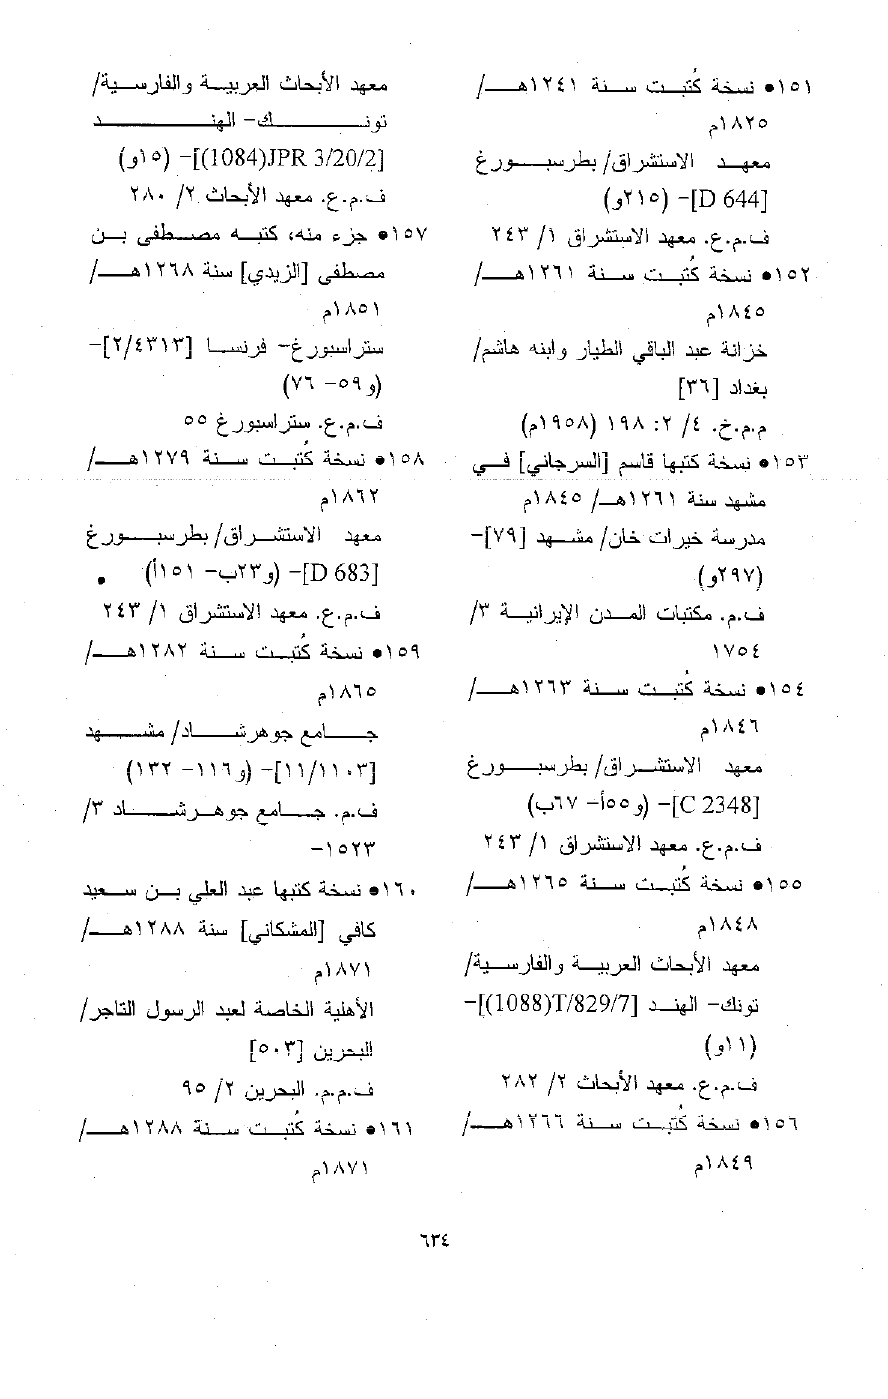 ١٥١● نسخة كُتبت سنة ١٢٤١هـ/
١٨٢٥م
معهد الاستشراق/ بطرسبورغ
[D 644]– (٢١٥و)
ف.م.ع. معهد الاستشراق ١/ ٢٤٣
١٥٢● نسخة كُتبت سنة ١٢٦١هـ/
١٨٤٥م
خزانة عبد الباقي الطيار وابنه هاشم/
بغداد [٣٦]
م.م.خ. ٤/ ٢: ١٩٨ (١٩٥٨م)
١٥٣● نسخة كتبها قاسم [السرجاني] في
مشهد سنة ١٢٦١هـ/ ١٨٤٥م
مدرسة خيرات خان/ مشهد [٧٩]–
(٢٩٧و)
ف.م. مكتبات المدن الإيرانية ٣/
١٧٥٤
١٥٤● نسخة كُتبت سنة ١٢٦٣هـ/
١٨٤٦م
معهد الاستشراق/ بطرسبورغ
[C 2348]– (و٥٥أ– ٦٧ب)
ف.م.ع. معهد الاستشراق ١/ ٢٤٣
١٥٥● نسخة كُتبت سنة ١٢٦٥هـ/
١٨٤٨م
معهد الأبحاث العربية والفارسية/
تونك– الهند [T/829/7(1088)]–
(١١و)
ف.م.ع. معهد الأبحاث ٢/ ٢٨٢
١٥٦● نسخة كُتبت سنة ١٢٦٦هـ/
١٨٤٩م
معهد الأبحاث العربية والفارسية/
تونك– الهند
[JPR 3/20/2(1084)]– (١٥و)
ف.م.ع. معهد الأبحاث ٢/ ٢٨٠
١٥٧● جزء منه، كتبه مصطفى بن
مصطفى [الزيدي] سنة ١٢٦٨هـ/
١٨٥١م
ستراسبورغ– فرنسا [٢/٤٣١٣]–
(و٥٩– ٧٦)
ف.م.ع. ستراسبورغ ٥٥
١٥٨● نسخة كُتبت سنة ١٢٧٩هـ/
١٨٦٢م
معهد الاستشراق/ بطرسبورغ
[D 683]– (و٢٣ب– ١٥١أ)
ف.م.ع. معهد الاستشراق ١/ ٢٤٣
١٥٩● نسخة كُتبت سنة ١٢٨٢هـ/
١٨٦٥م
جامع جوهرشاد/ مشهد
[١١/١١٠٣]– (و١١٦– ١٣٢)
ف.م. جامع جوهرشاد ٣/
١٥٢٣–
١٦٠● نسخة كتبها عبد العلي بن سعيد
كافي [المشكاني] سنة ١٢٨٨هـ/
١٨٧١م
الأهلية الخاصة لعبد الرسول التاجر/
البحرين [٥٠٣]
ف.م.م. البحرين ٢/ ٩٥
١٦١● نسخة كُتبت سنة ١٢٨٨هـ/
١٨٧١م
٦٣٤